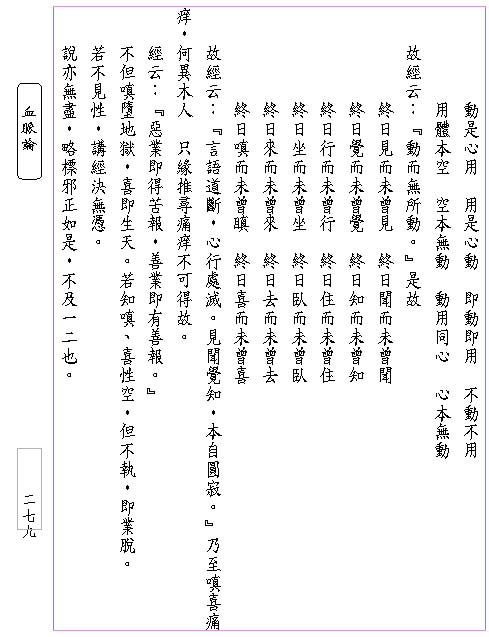 動是心用　用是心動　即動即用　不動不用
用體本空　空本無動　動用同心　心本無動
故經云：『動而無所動。』是故
終日見而未曾見　終日聞而未曾聞
終日覺而未曾覺　終日知而未曾知
終日行而未曾行　終日住而未曾住
終日坐而未曾坐　終日臥而未曾臥
終日來而未曾來　終日去而未曾去
終日嗔而未曾瞋　終日喜而未曾喜
故經云：『言語道斷，心行處滅。見聞覺知，本自圓寂。』乃至嗔喜痛
痒，何異木人　只緣推尋痛痒不可得故。
經云：『惡業即得苦報，善業即有善報。』
不但嗔墮地獄，喜即生天。若知嗔、喜性空，但不執，即業脫。
若不見性，講經決無憑。
說亦無盡，略標邪正如是，不及一二也。
血脈論
二七九